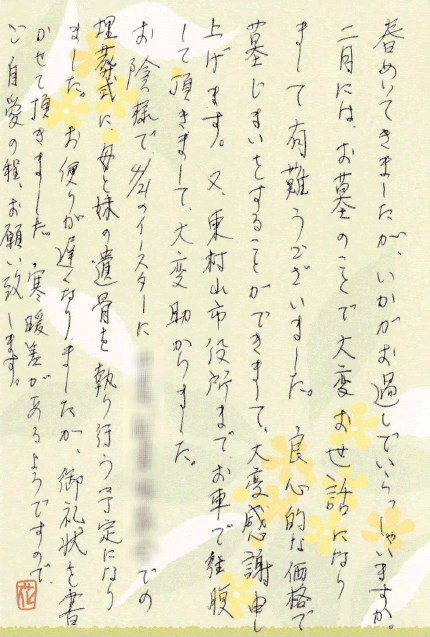 春めいてきましたが、いかがお過しでいらっしゃいますか。
二月には、お墓のことで大変お世話になり
まして有難うございました。良心的な価格で
墓じまいをすることができまして、大変感謝申し
上げます。又、東村山市役所までお車で
して頂きまして、大変助かりました。
お陰様で4/21のイースターに での
埋葬式に、母と妹の遺骨を執り行う予定になり
ました。お便りが遅くなりましたが、御礼状を書
かせて頂きました。寒暖差があるようですので、
ご自愛の程、お願い致します。
花